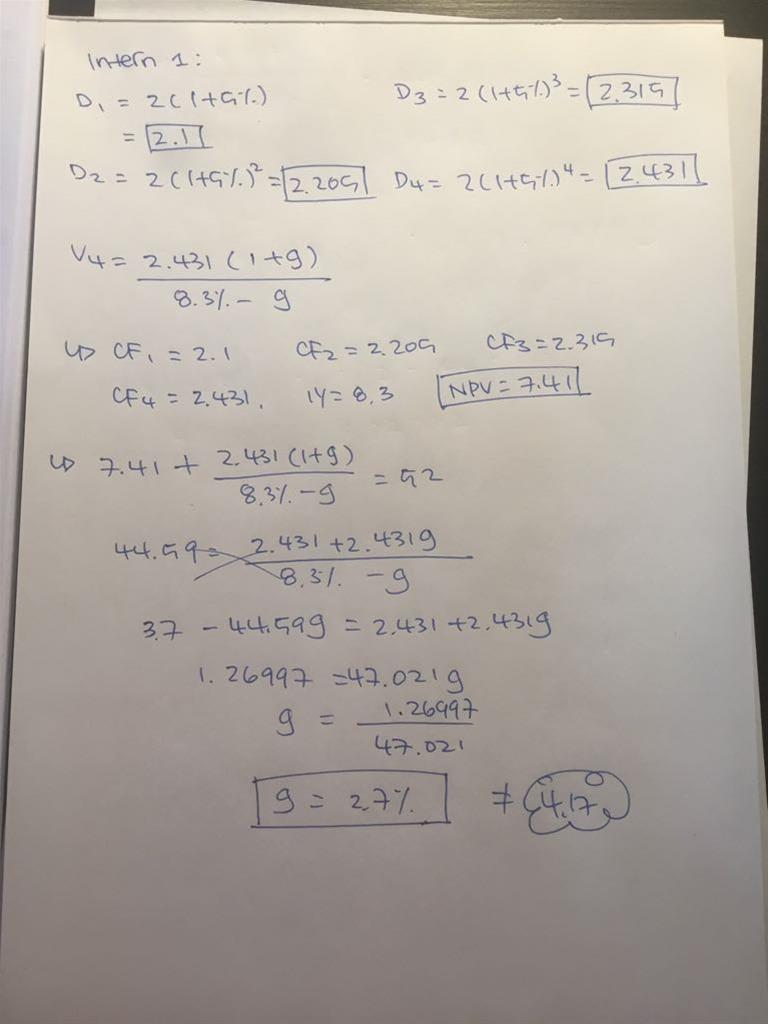 Intern 1:
D1 = 2(1+5%) D3 = 2(1+5%)^3 = 2.315
= 2.1
D2 = 2(1+5%)^2 = 2.205 D4 = 2(1+5%)^4 = 2.431
V4 = 2.431 (1+g)
8.3% - g
↳ CF1 = 2.1 CF2 = 2.205 CF3 = 2.315
CF4 = 2.431, IY = 8.3 NPV = 7.41
↳ 7.41 + 2.431 (1+g) = 52
8.3% - g
44.59 = 2.431 + 2.431g
8.3% - g
3.7 - 44.59g = 2.431 + 2.431g
1.26997 = 47.021g
g = 1.26997
47.021
g = 2.7% ≠ 4.17